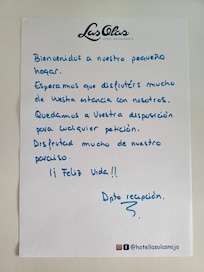 Las Olas
Bienvenidos a nuestro pequeño
hogar.
Esperamos que disfrutéis mucho
de vuestra estancia con nosotros.
Quedamos a vuestra disposición
para cualquier petición.
Disfrutad mucho de nuestro
paraiso.
¡¡ Feliz Vida!!
Dpto recepción.
@hotellasolasnoja